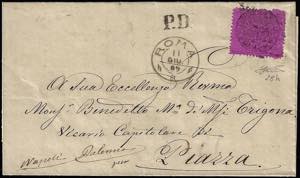 P.D.
ROMA
11
GIU
69
A Sua Eccellenza Revma
Monsr Benedetto Ma di Msi Trigona
Vicario Capitolare di
Napoli Palermo
per
Piazza